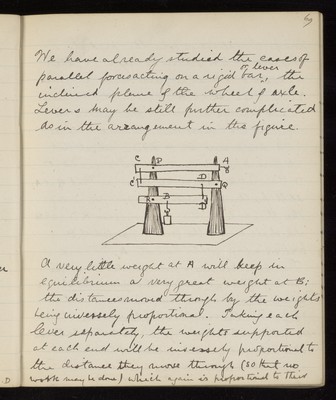 9
We have already studied the cases of
parallel forces acting on a rigid bar, or lever the
inclined plane & the wheel & axle.
Levers may be still further complicated
as in the arrangement in this figure.
C D A
C D Q
B
A very little weight at A will keep in
equilibrium a very great weight at B;
the distances moved through by the weights
being inversely proportional. Taking each
lever separately, the weights supported
at each end will be inversely proportional to
the distance they move through (so that no
work may be done) which again is proportional to their
D